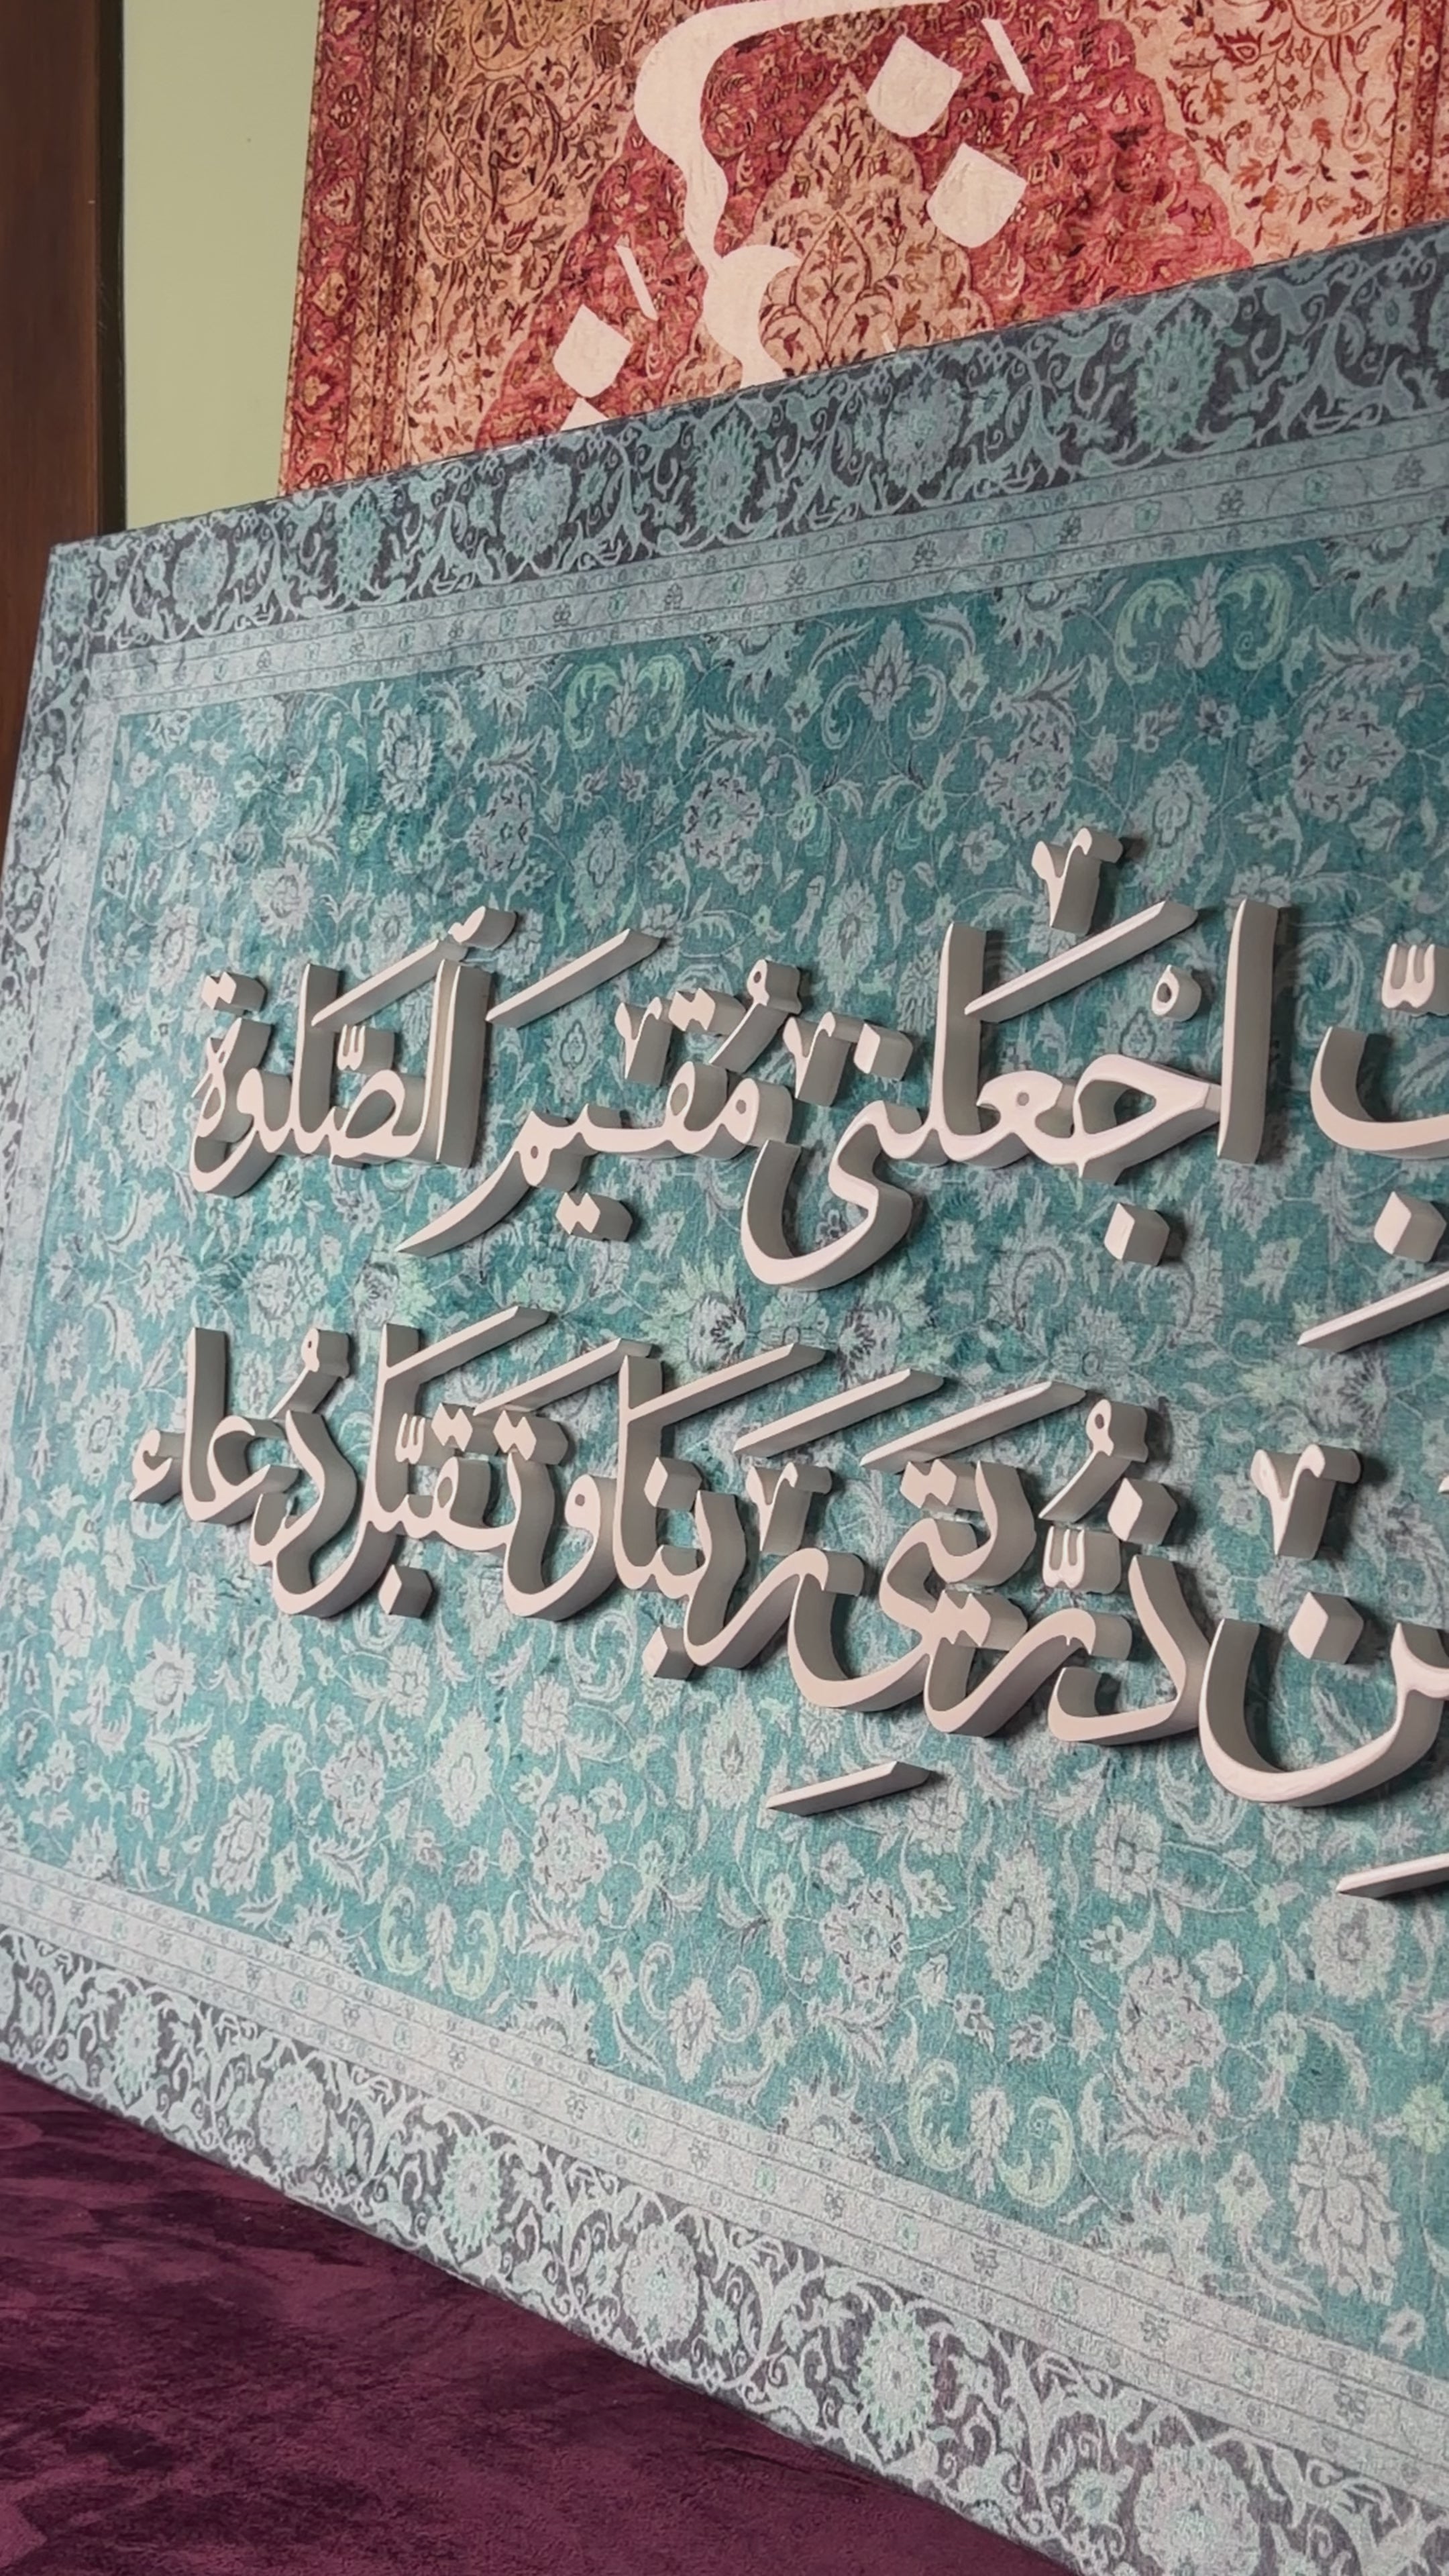 بِّ اجْعَلْنِي مُقِيمَ الصَّلَوةَ
مِن ذُرِّيَّتِي رَبَّنَا وَتَقَبَّلْ دُعَاء